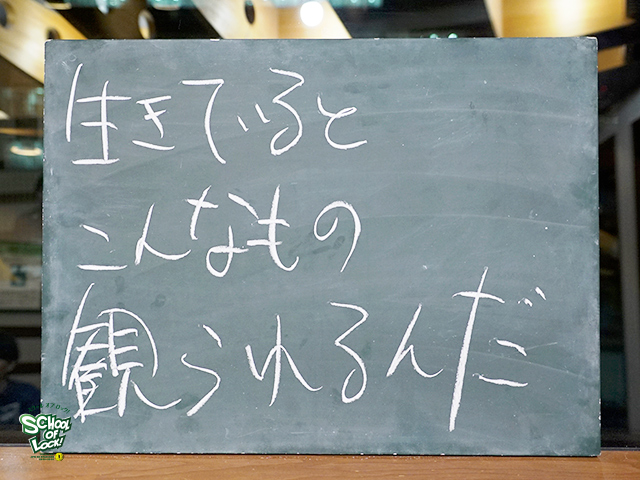 生きていると
こんなもの
観られるんだ
SCHOOL
OF
LOCK!